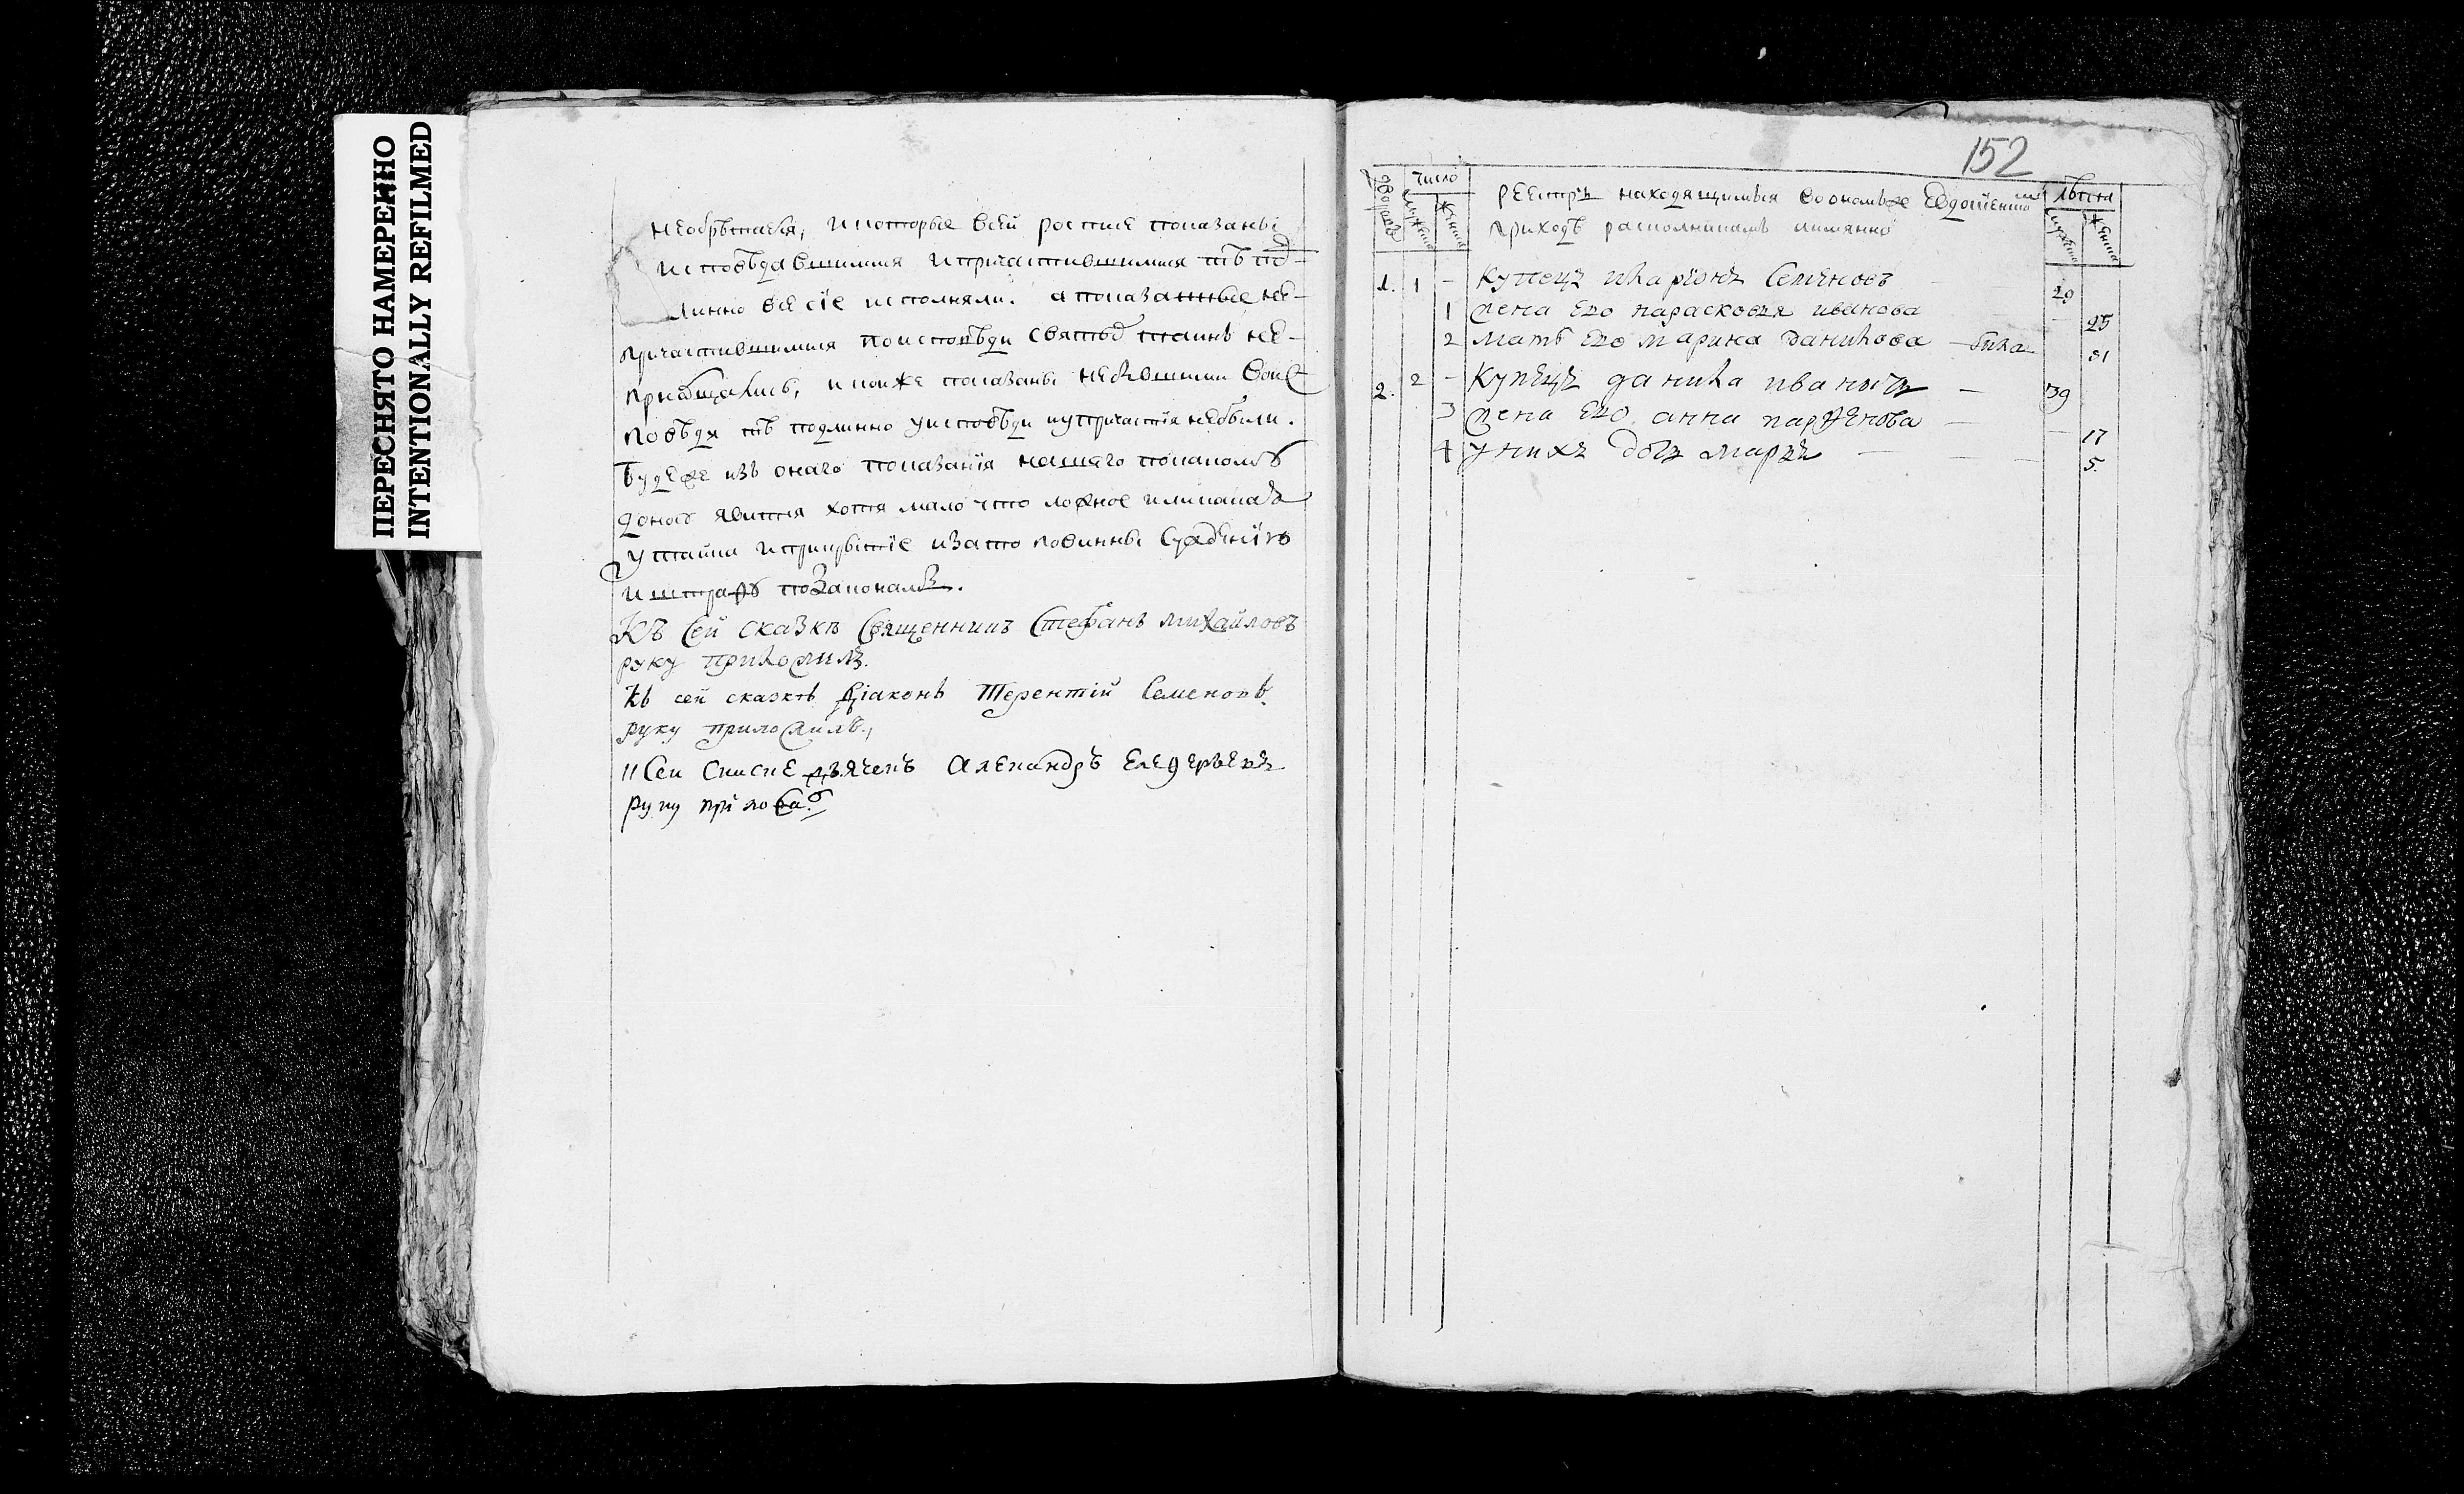 ПЕРЕСНЯТО НАМЕРЕННО
INTENTIONALLY REFILMED
необрѣтается, икоторые всей росписе показаны
исповѣдавшимися ипричастившимися тѣ под-
линно все сїе исполняли. апоказанные не-
причастившимися поисповѣди святыхъ таинъ не-
приобщались, икои же показаны небывшими воис-
повѣди тѣ подлинно уисповѣди иупричастїя небыли.
Будеже изъ онаго показанїя нашего покакомъ
доносъ явится хотя мало что ложное иликакая
утайка иприкрытїе изато повинны суждению
иштрафъ позаконамъ.
Къ сей сказкѣ священникъ Стефанъ михайловъ
руку приложилъ.
Къ сей сказкѣ дїаконъ Терентїй Семеновъ
руку приложилъ,
Ксеи сказке дьячекъ Александръ
руку приложилъ
152
дворовое
число
мужеска
женска
реестръ находящимъся воономъже Евдокїенском
приходѣ расколникамъ имянно
лѣта
мужеска
женска
1. 1 - купецъ иларїонъ Семеновъ 29
1 жена его парасковея иванова 25
2 мать его марина данилова 81
2. 2 - купецъ данила иванычъ - 39
3 жена его анна парѳенова - 17
4 у нихъ дочь марья - 5.